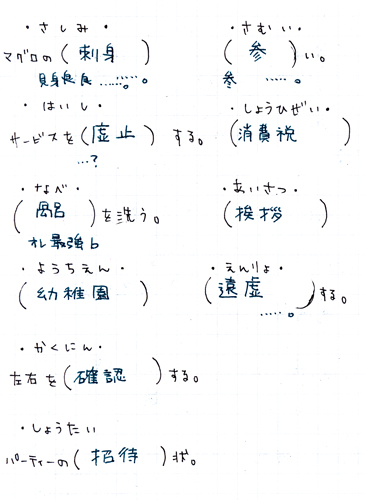 ・さしみ・
マグロの(刺身)
貝身良良……。
・さむい・
(参)い。
参……。
・はいし・
サービスを(虚止)する。
…?
・しょうひぜい・
(消費税)
・なべ・
を洗う。
オレ最強b
・あいさつ・
(挨拶)
・ようちえん・
(幼稚園)
・えんりょ・
(遠虚)する。
……。
・かくにん・
左右を(確認)する。
・しょうたい
パーティーの(招待)状。